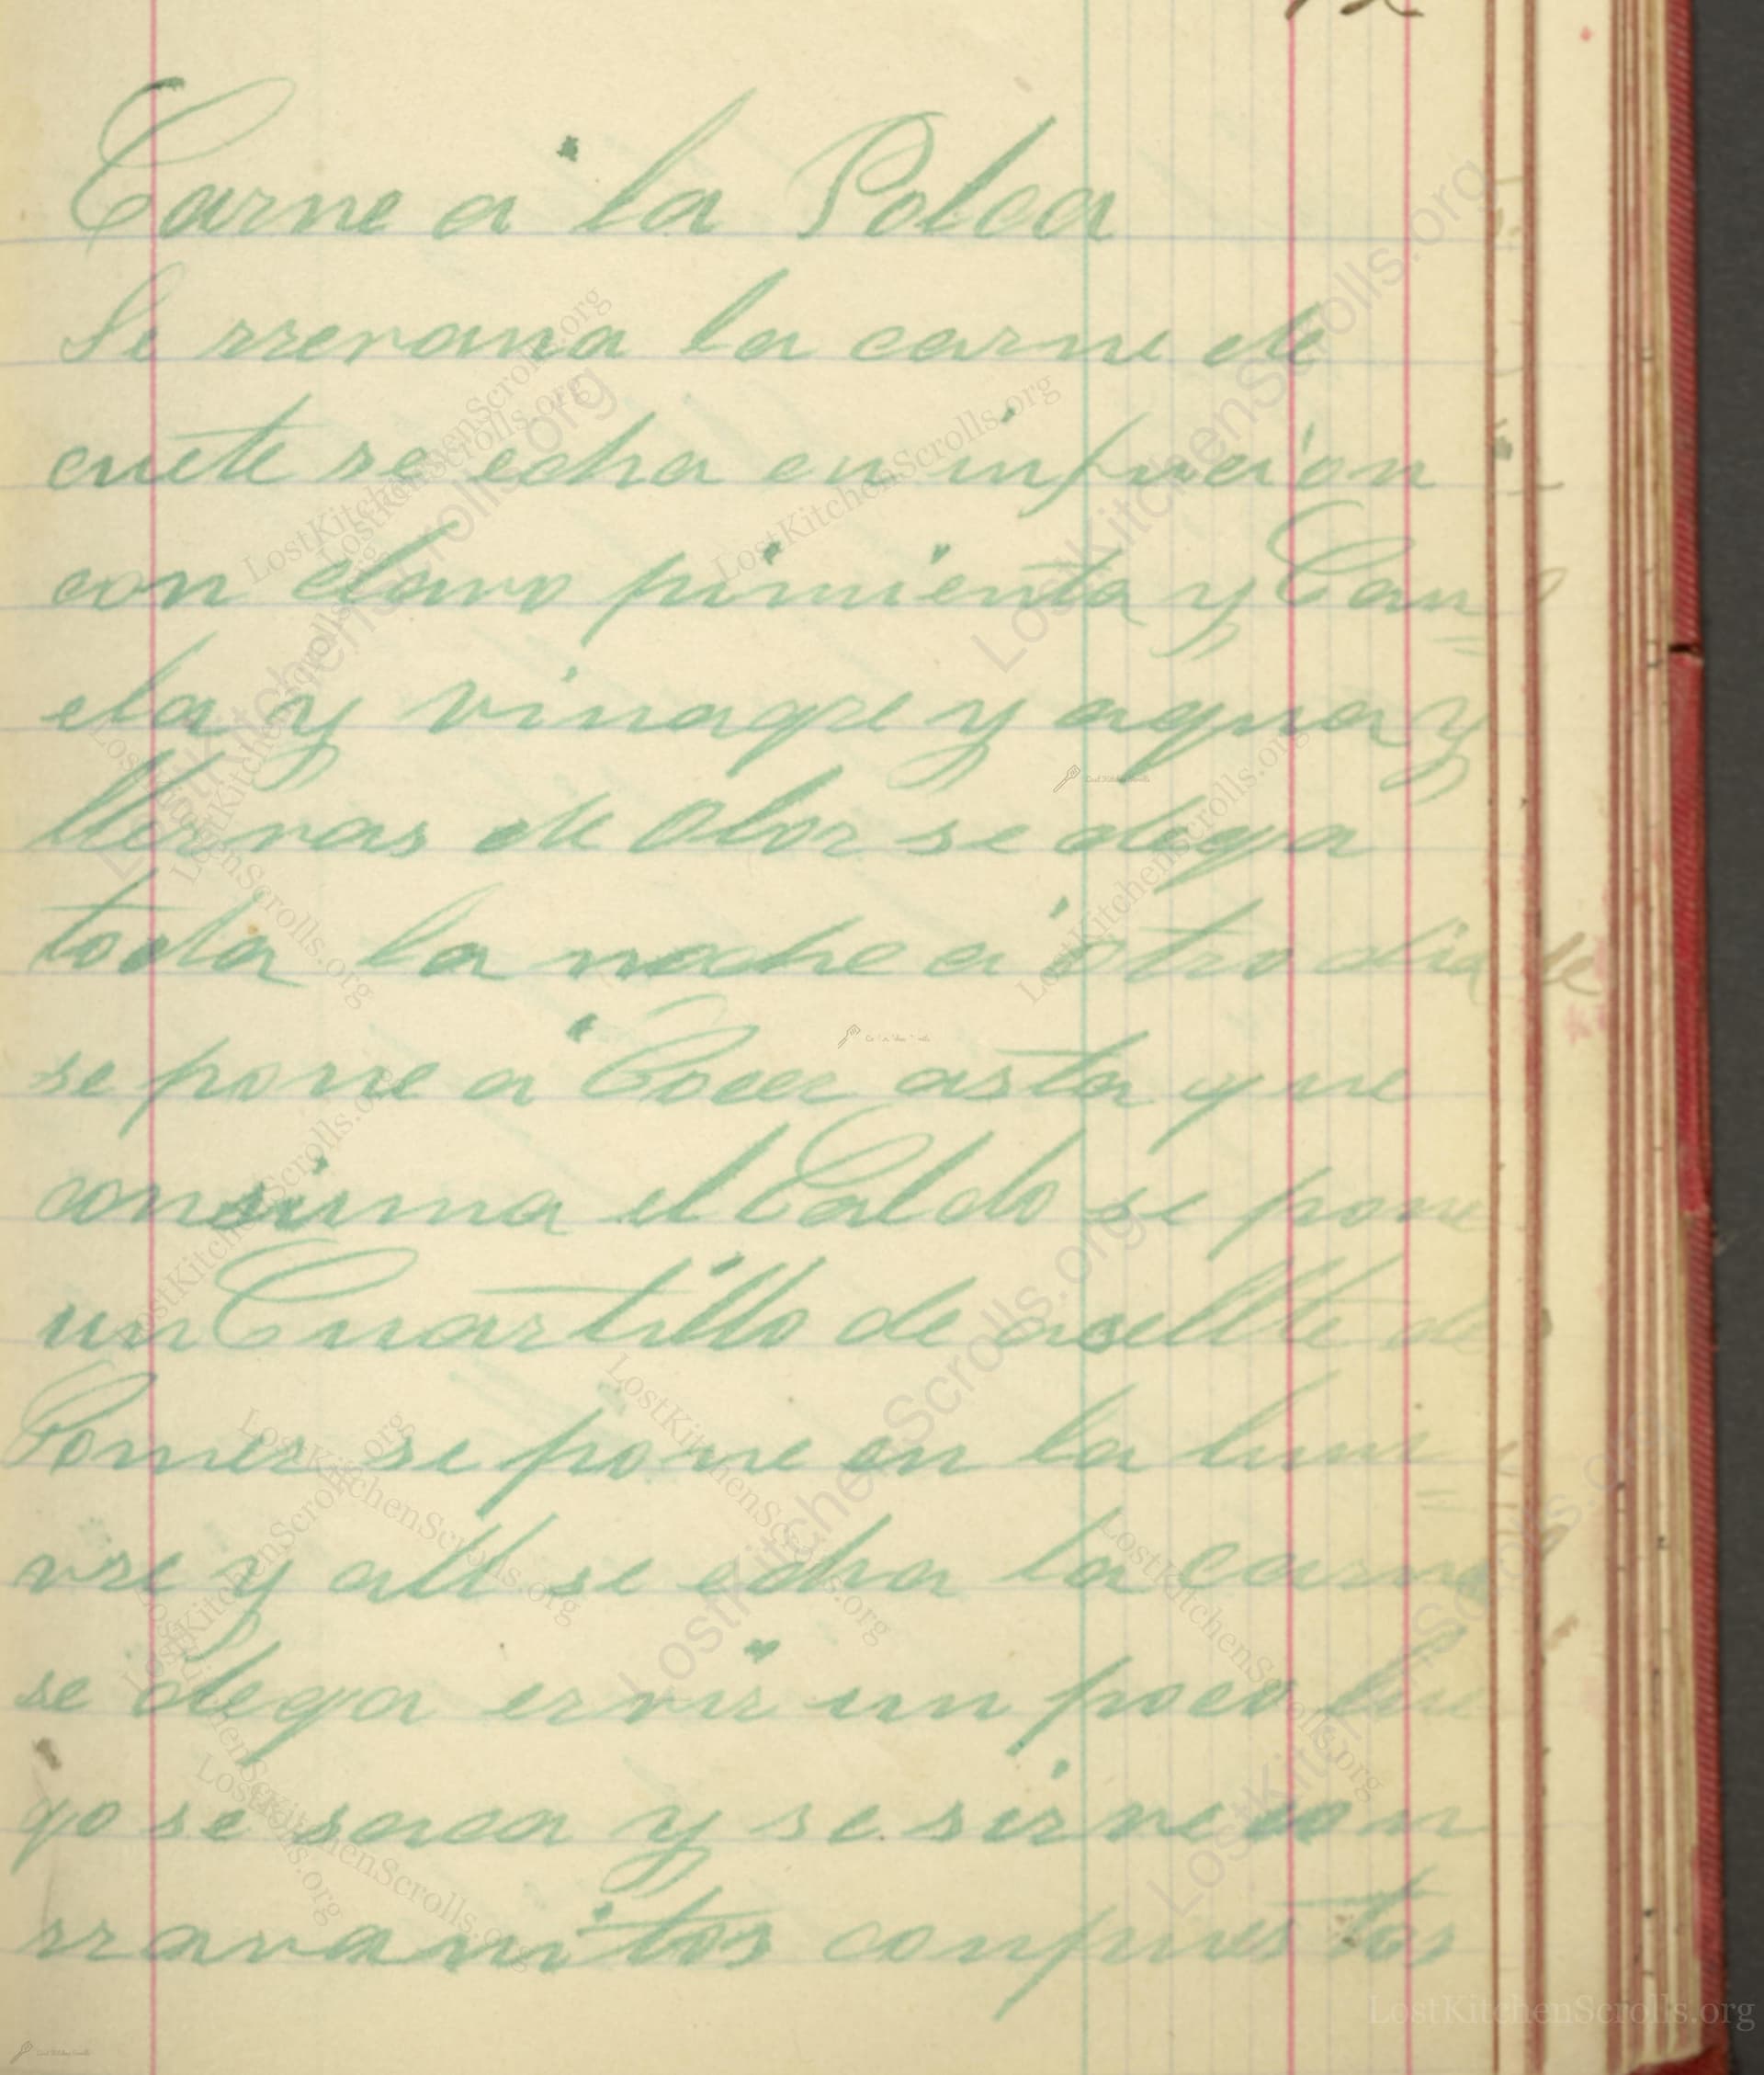 Carne a la Polca
Se rrevana la carne de
cuete se echa en infucion
con clavo pimienta y Can=
ela y vinagre y agua y
llervas de Olor se dega
toda la noche a otro dia
se pone a Cocer asta que
consuma el Caldo se pone
un Cuartillo de asellte de
Comer se pone en la lum=
vre y all se echa la carne
se dega ervir un poco lue
go se saca y se sirve con
rravanitos conpuestos
LostKitchenScrolls.org